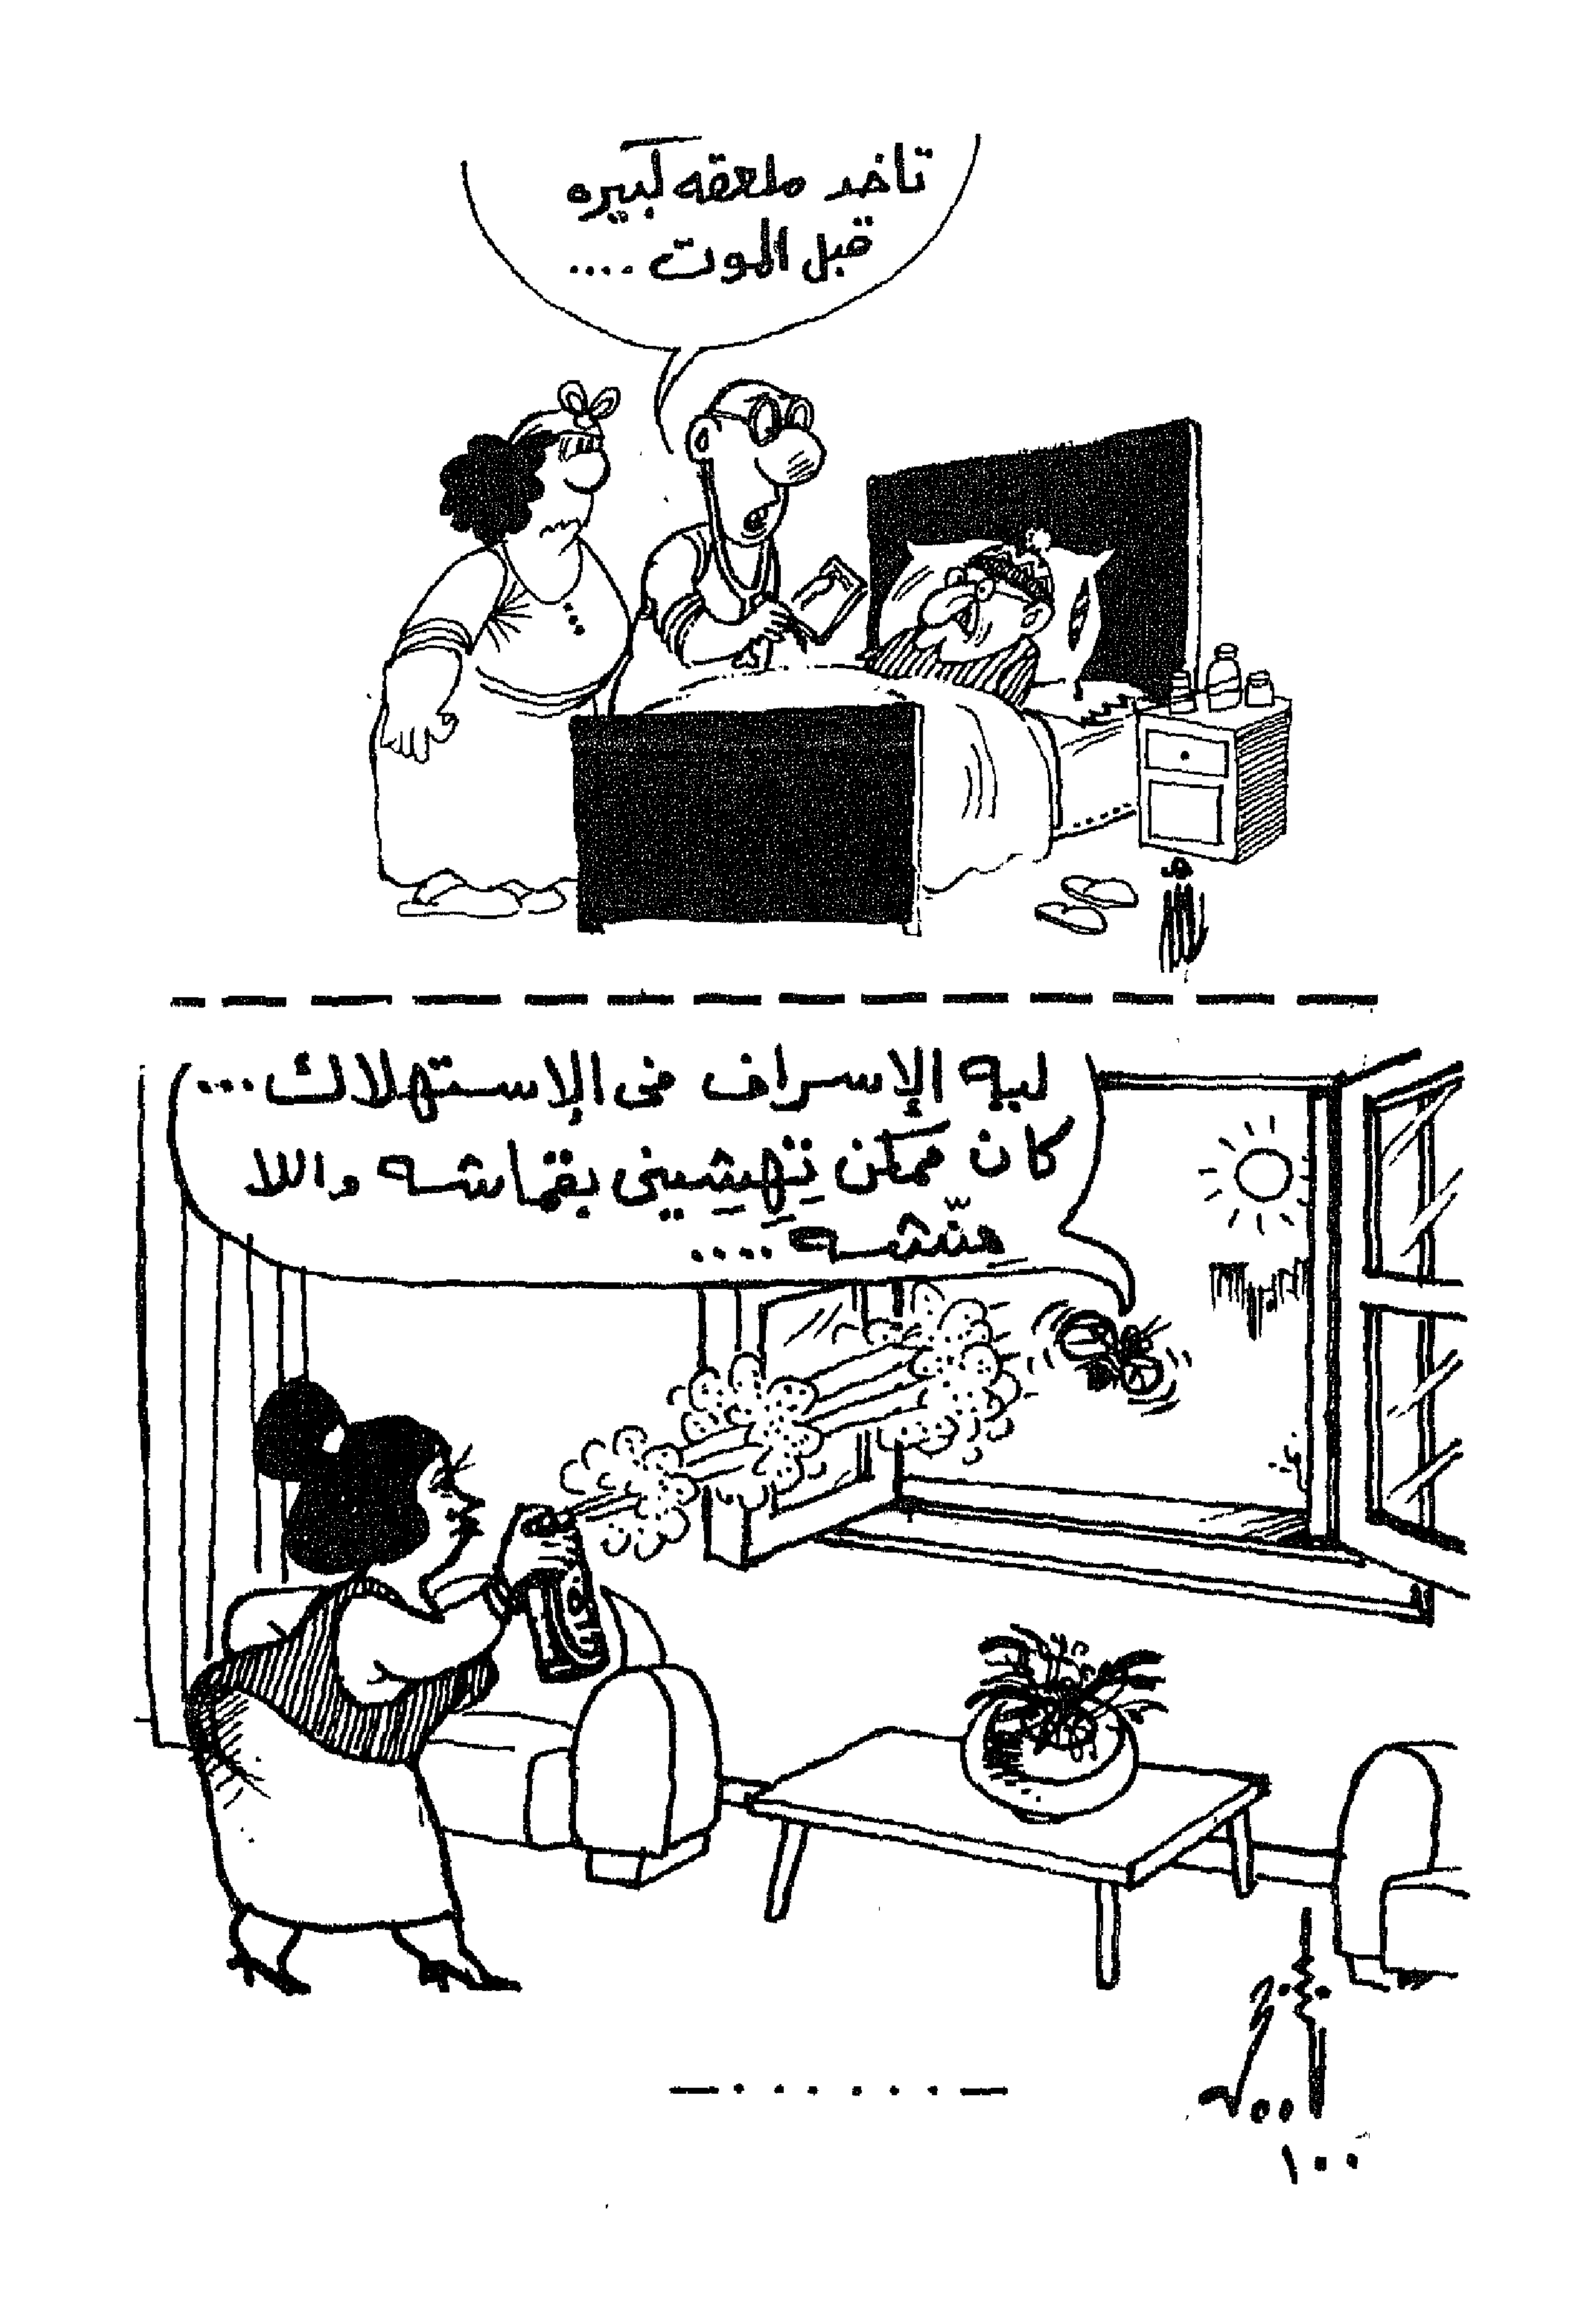 تاخد ملعقه كبيره
قبل الموت ....
ليه الإسراف فى الإستهلاك ...
كان ممكن تِهِشِينى بقماشه واللا
منّشه ....
١٠٠